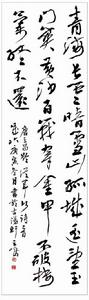 青海長雲暗雪山孤城遥望玉
門關黄沙百戰穿金甲不破樓
蘭終不還
唐王昌齡從軍行